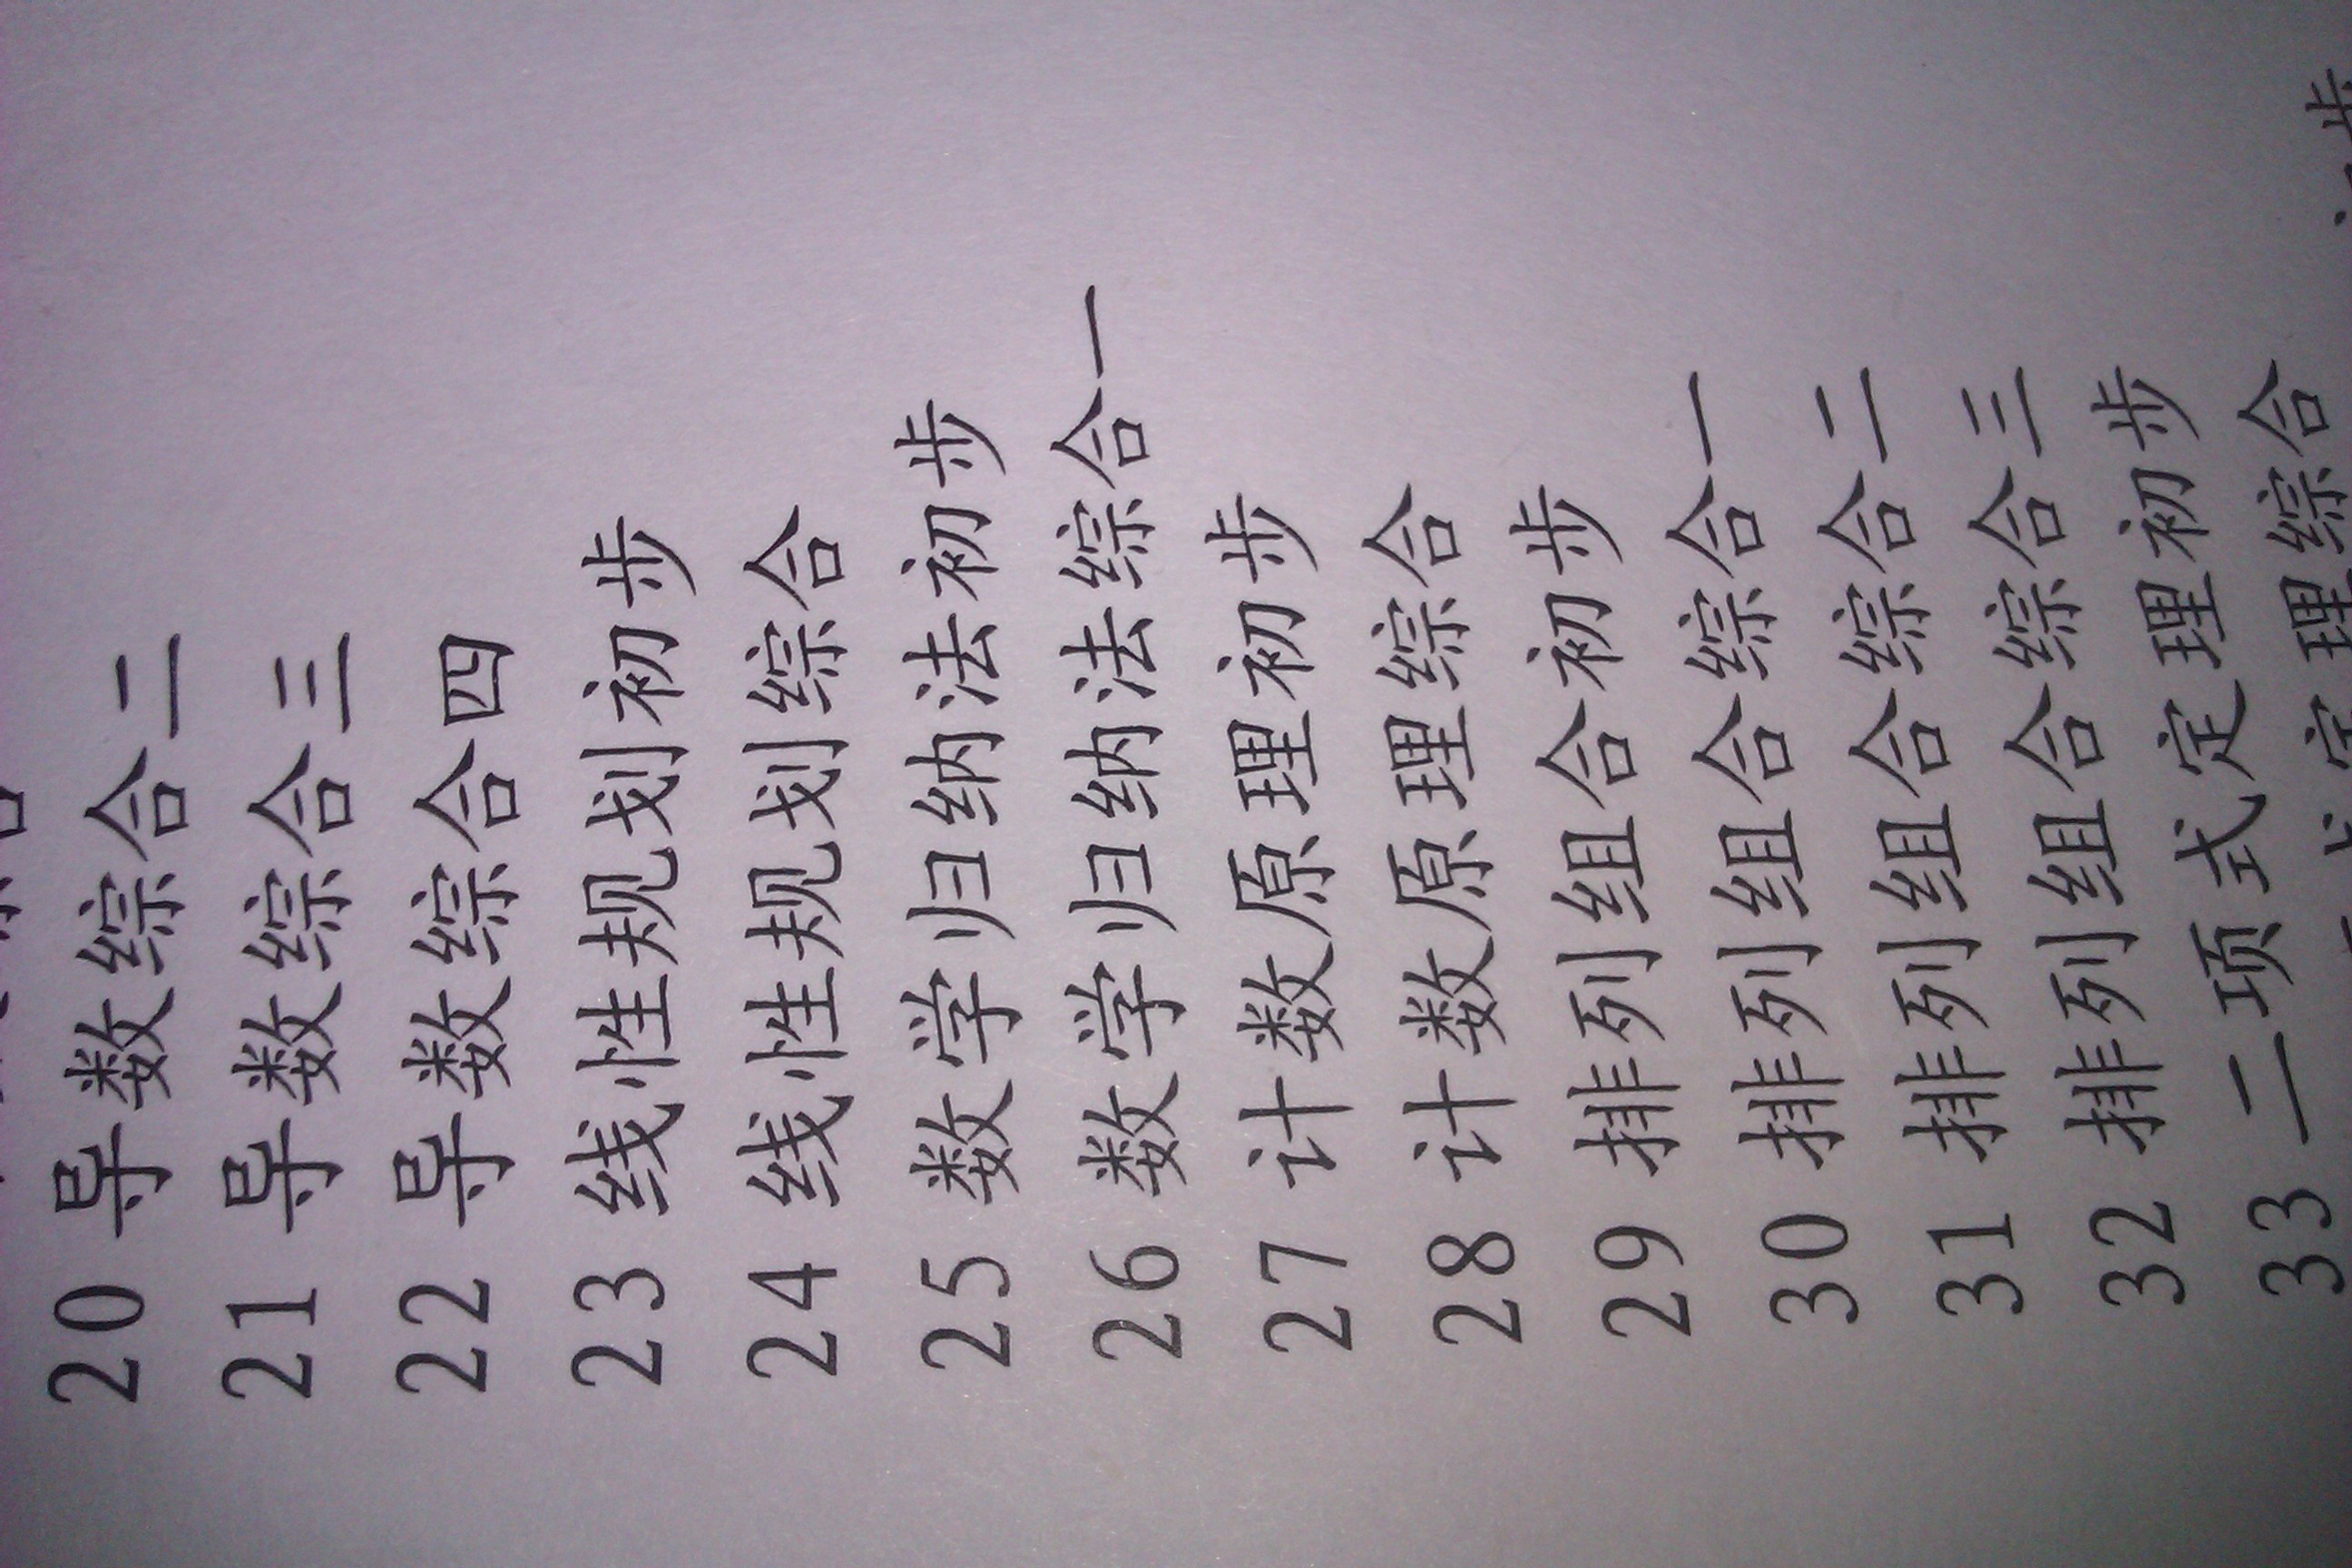 20 导数综合二
21 导数综合三
22 导数综合四
23 线性规划初步
24 线性规划综合
25 数学归纳法初步
26 数学归纳法综合一
27 计数原理初步
28 计数原理综合
29 排列组合初步
30 排列组合综合一
31 排列组合综合二
32 排列组合综合三
33 二项式定理初步
定理综合